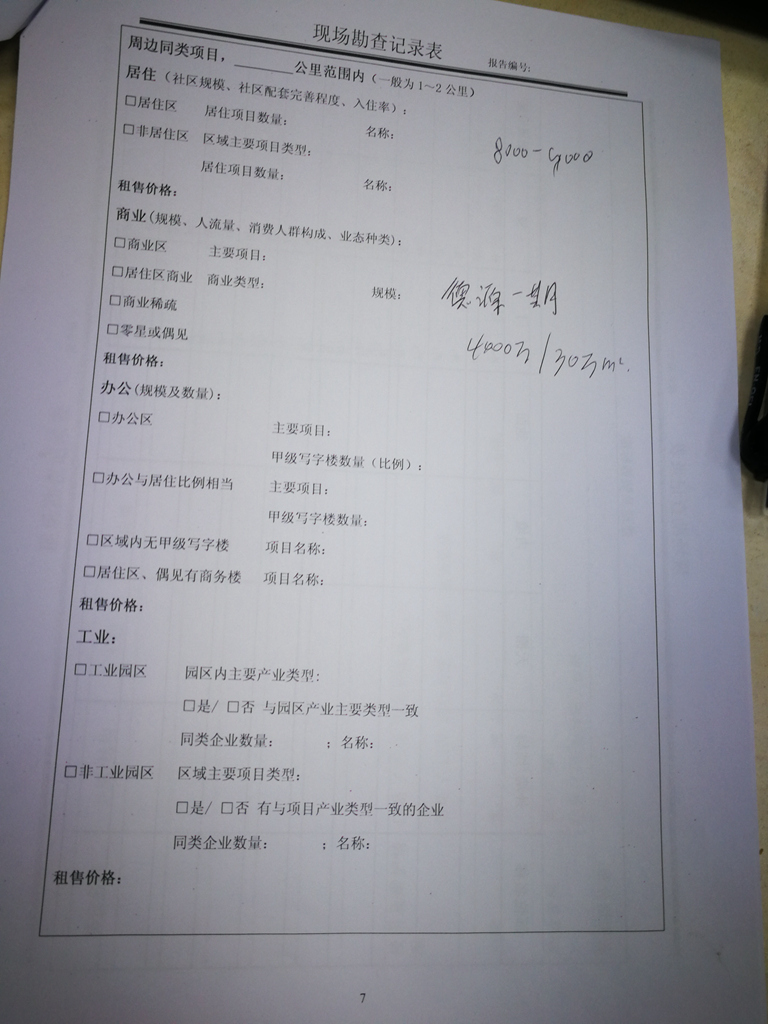 现场勘查记录表
报告编号:
周边同类项目，______公里范围内（一般为1～2公里）
居住（社区规模、社区配套完善程度、入住率）:
□居住区 居住项目数量: 名称:
8000-9000
□非居住区 区域主要项目类型:
居住项目数量: 名称:
租售价格:
商业(规模、人流量、消费人群构成、业态种类):
□商业区 主要项目:
□居住区商业 商业类型: 规模:
一期
□商业稀疏
□零星或偶见
4400万/30万m².
租售价格:
办公(规模及数量):
□办公区 主要项目:
甲级写字楼数量（比例）:
□办公与居住比例相当 主要项目:
甲级写字楼数量:
□区域内无甲级写字楼 项目名称:
□居住区、偶见有商务楼 项目名称:
租售价格:
工业:
□工业园区 园区内主要产业类型:
□是/ □否 与园区产业主要类型一致
同类企业数量: ; 名称:
□非工业园区 区域主要项目类型:
□是/ □否 有与项目产业类型一致的企业
同类企业数量: ; 名称:
租售价格:
7